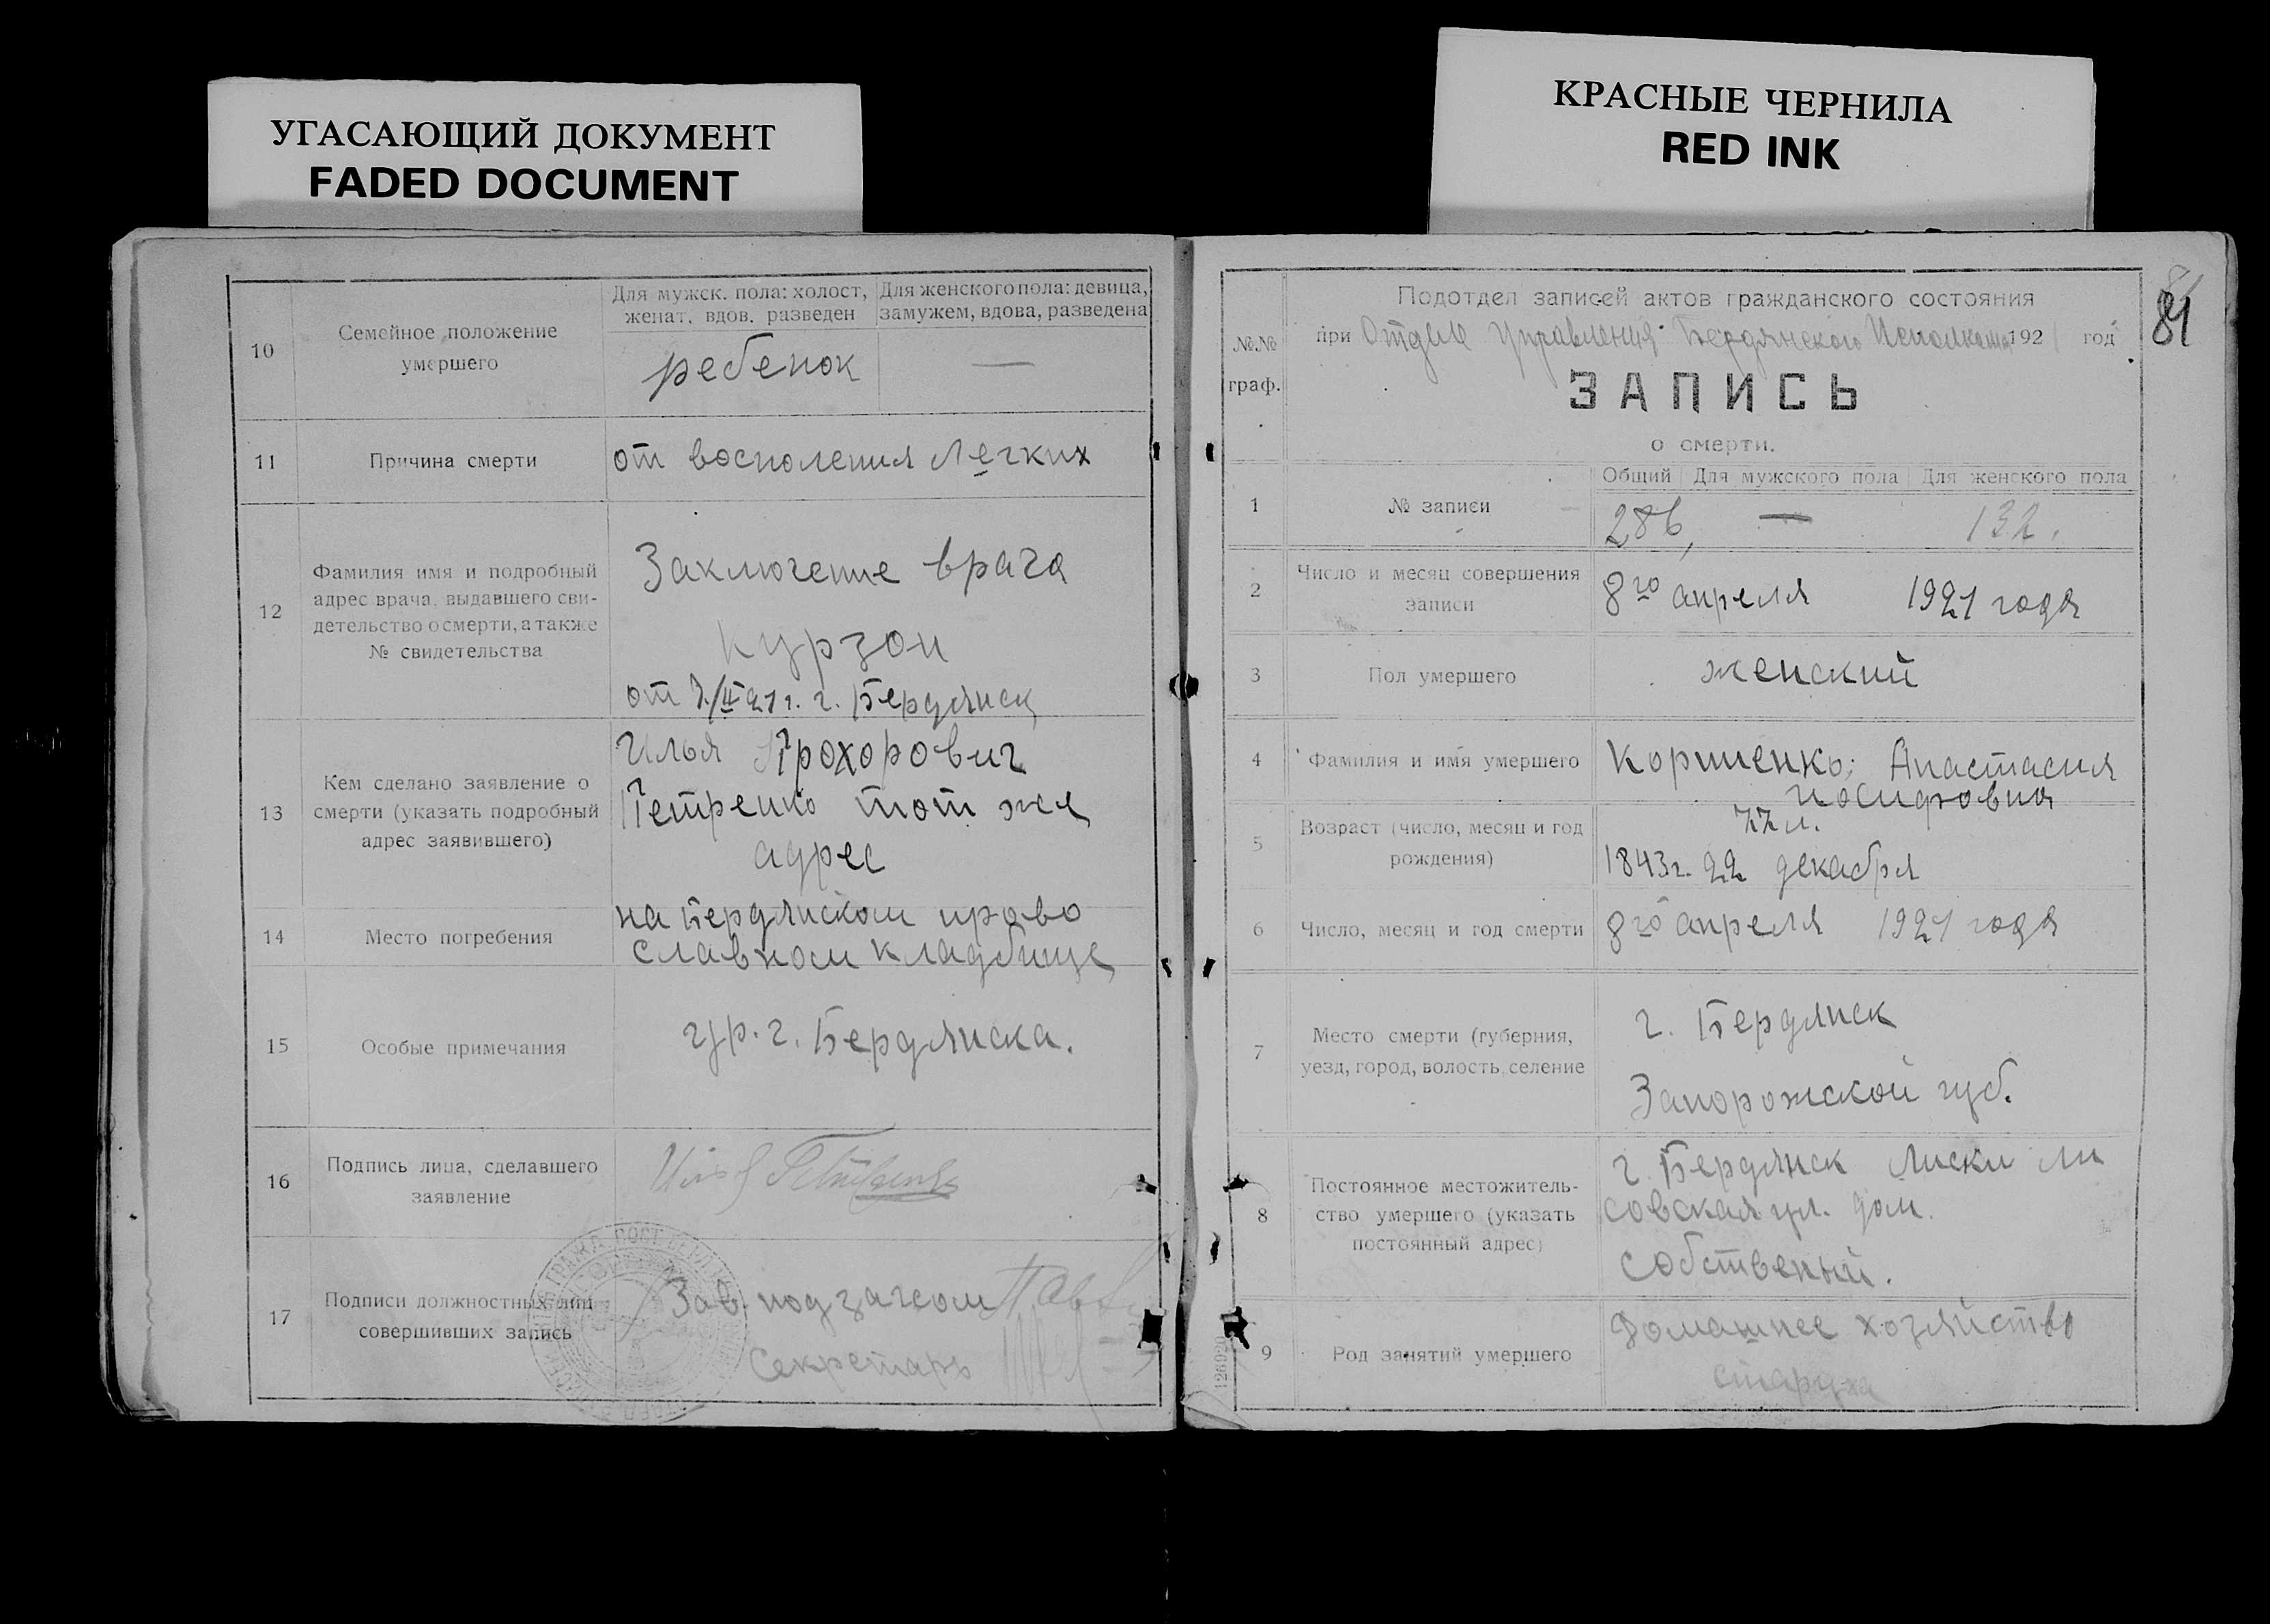 УГАСАЮЩИЙ ДОКУМЕНТ
FADED DOCUMENT
КРАСНЫЕ ЧЕРНИЛА
RED INK
10
Семейное положение
умершего
Для мужск. пола: холост,
женат, вдов. разведен
Для женского пола: девица,
замужем, вдова, разведена
ребенок
—
11
Причина смерти
от восполения Легких
12
Фамилия имя и подробный
адрес врача, выдавшего сви-
детельство о смерти, а также
№ свидетельства
Заключение врача
Курзон
от 7/IV 21 г. г. Бердянск
13
Кем сделано заявление о
смерти (указать подробный
адрес заявившего)
Илья Прохорович
Петренко тот же
адрес
14
Место погребения
на Бердянском право
славном кладбище
15
Особые примечания
гр. г. Бердянска.
16
Подпись лица, сделавшего
заявление
17
Подписи должностных лиц
совершивших запись
Зав. подзагсом
Секретарь
81
№№
граф.
Подотдел записей актов гражданского состояния
при Отделе Управления Бердянского Исполкома 192 год
ЗАПИСЬ
о смерти.
1
№ записи
Общий
Для мужского пола
Для женского пола
286,
—
132.
2
Число и месяц совершения
записи
8го апреля 1921 года
3
Пол умершего
женский
4
Фамилия и имя умершего
Коршенко; Анастасия
Иосифовна
5
Возраст (число, месяц и год
рождения)
77 л.
1843 г. 22 декабря
6
Число, месяц и год смерти
8го апреля 1921 года
7
Место смерти (губерния,
уезд, город, волость, селение
г. Бердянск
Запорожской губ.
8
Постоянное местожитель-
ство умершего (указать
постоянный адрес)
г. Бердянск Лиски Ли
совская ул. дом.
собственый.
9
Род занятий умершего
Домашнее хозяйство
старуха
126920